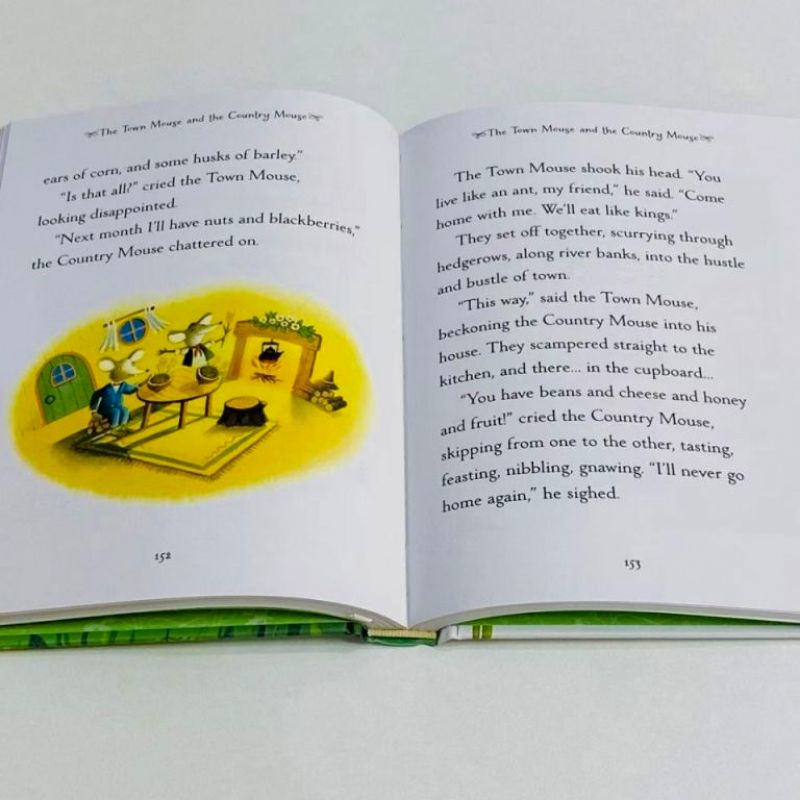 The Town Mouse and the Country Mouse
ears of corn, and some husks of barley.”
“Is that all?” cried the Town Mouse,
looking disappointed.
“Next month I’ll have nuts and blackberries,”
the Country Mouse chattered on.
152
The Town Mouse and the Country Mouse
The Town Mouse shook his head. “You
live like an ant, my friend,” he said. “Come
home with me. We’ll eat like kings.”
They set off together, scurrying through
hedgerows, along river banks, into the hustle
and bustle of town.
“This way,” said the Town Mouse,
beckoning the Country Mouse into his
house. They scampered straight to the
kitchen, and there... in the cupboard...
“You have beans and cheese and honey
and fruit!” cried the Country Mouse,
skipping from one to the other, tasting,
feasting, nibbling, gnawing. “I’ll never go
home again,” he sighed.
153